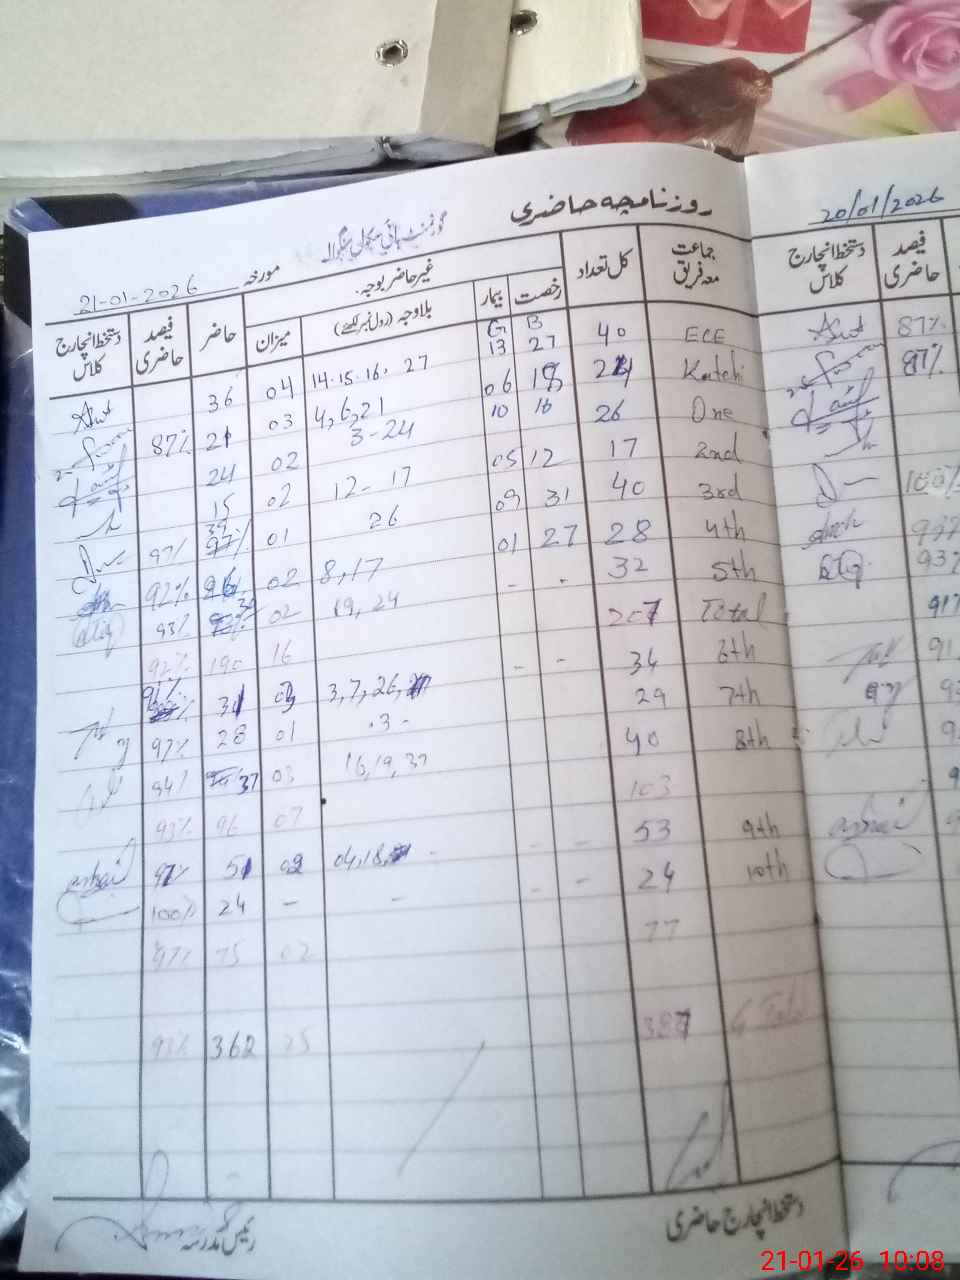 روزنامچہ حاضری
گورنمنٹ ہائی سکول
مورخہ 21-01-2026
جماعت معہ فریق کل تعداد غیر حاضر بوجہ حاضر فیصد حاضری دستخط انچارج کلاس
رخصت بیمار بلاوجہ (رول نمبر لکھئے) میزان
B G
ECE 40 27 13 14-15-16, 27 04 36
Katchi 24 18 06 4,6,21 03 21 87%
One 26 16 10 3-24 02 24
2nd 17 12 05 12- 17 02 15
3rd 40 31 09 26 01 39 97%
4th 28 27 01 8,17 02 26 92%
5th 32 - - 19, 24 02 30 93%
Total 207 16 190 92%
6th 34 - - 3,7,26, 03 31 91%
7th 29 - 3 - 01 28 97%
8th 40 16,19,37 03 37 94%
103 07 96 93%
9th 53 - - 04,18, 02 51 97%
10th 24 - - - - 24 100%
77 02 75 97%
G Total 387 25 362 93%
دستخط انچارج حاضری
رئیس مدرسہ
20/01/2026
فیصد حاضری دستخط انچارج کلاس
87%
87%
100%
93%
91%
21-01-26 10:08